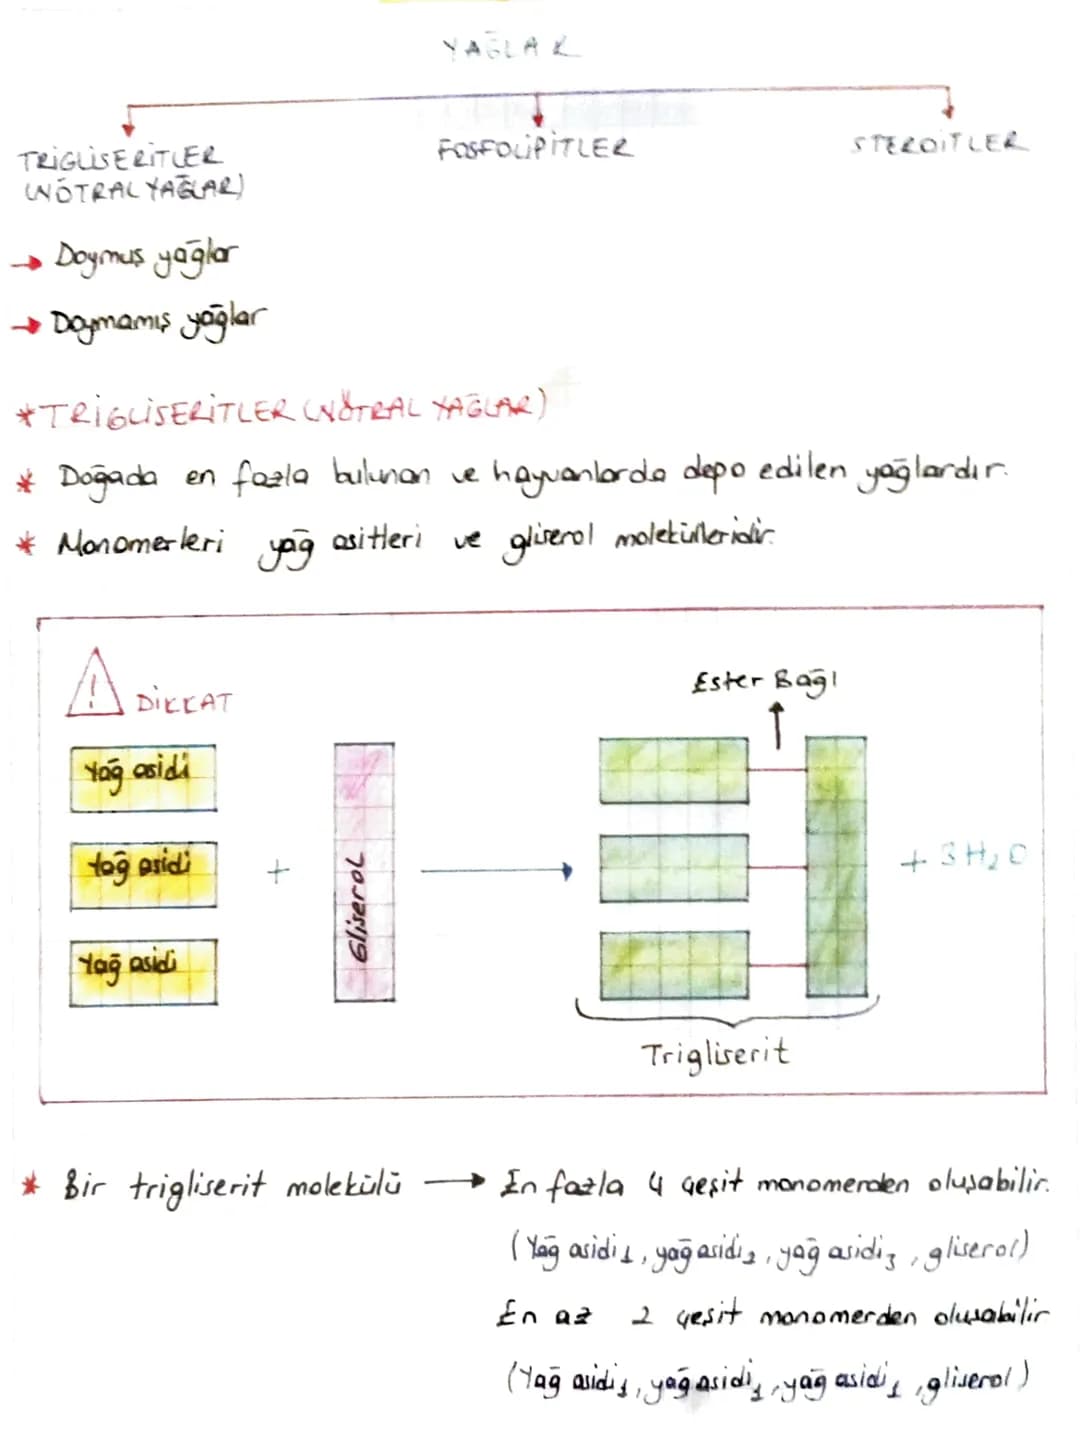 YAĞLAR
TRİGLİSERİTLER
(NÖTRAL YAĞLAR)
FOSFOLİPİTLER
STEROİTLER
→ Doymuş yağlar
→ Doymamış yağlar
*TRİGLİSERİTLER (NÖTRAL YAĞLAR)
* Doğada en fazla bulunan ve hayvanlarda depo edilen yağlardır.
* Monomerleri yağ asitleri ve gliserol molekülleridir.
! DİKKAT
Ester Bağı
Yağ asidi
Yağ asidi
Yağ asidi
+
Gliserol
+ 3H₂O
Trigliserit
* Bir trigliserit molekülü → En fazla 4 çeşit monomerden oluşabilir.
(Yağ asidi₁, yağ asidi₂, yağ asidi₃, gliserol)
En az 2 çeşit monomerden oluşabilir
(Yağ asidi₁, yağ asidi₁, yağ asidi₁, gliserol)